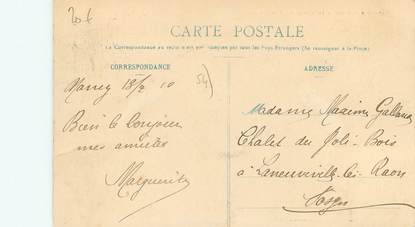 20 €
CARTE POSTALE
La Correspondance au recto n'est pas acceptée par tous les Pays Étrangers (Se renseigner à la Poste)
CORRESPONDANCE
ADRESSE
Nancy 18/2 10
54)
Bien le bonjour
mes amitiés
Marguerite
Madame Maxime
Chalet du Joli-Bois
à Laneuveville-les-Raon
Vosges